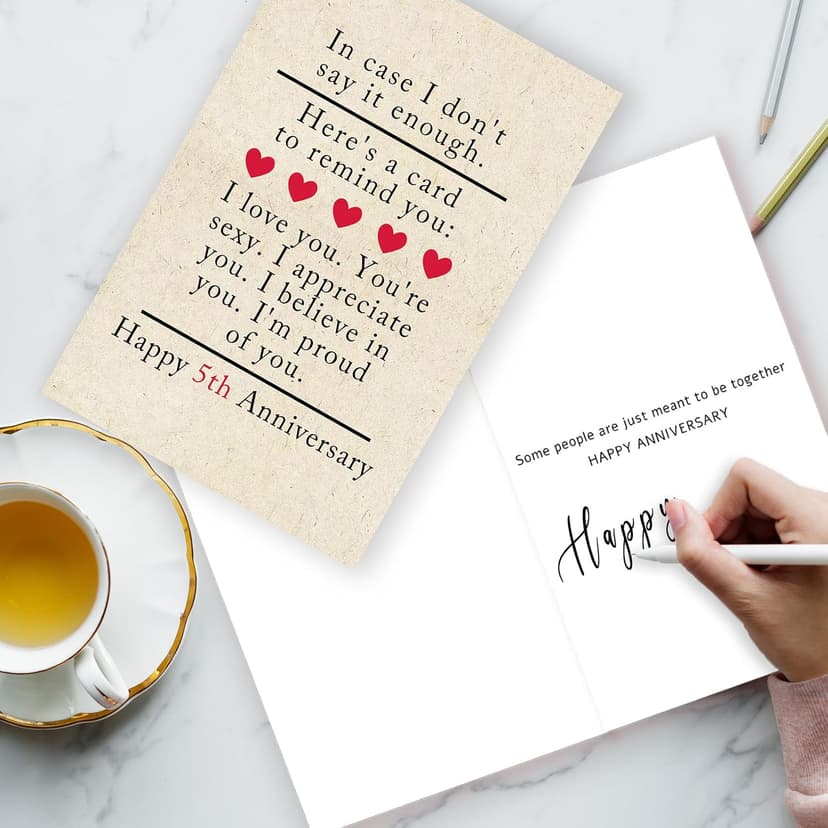 In case I don't
say it enough.
Here's a card
to remind you:
I love you. You're
sexy. I appreciate
you. I believe in
you. I'm proud
of you.
Happy 5th Anniversary
Some people are just meant to be together
HAPPY ANNIVERSARY
Happy